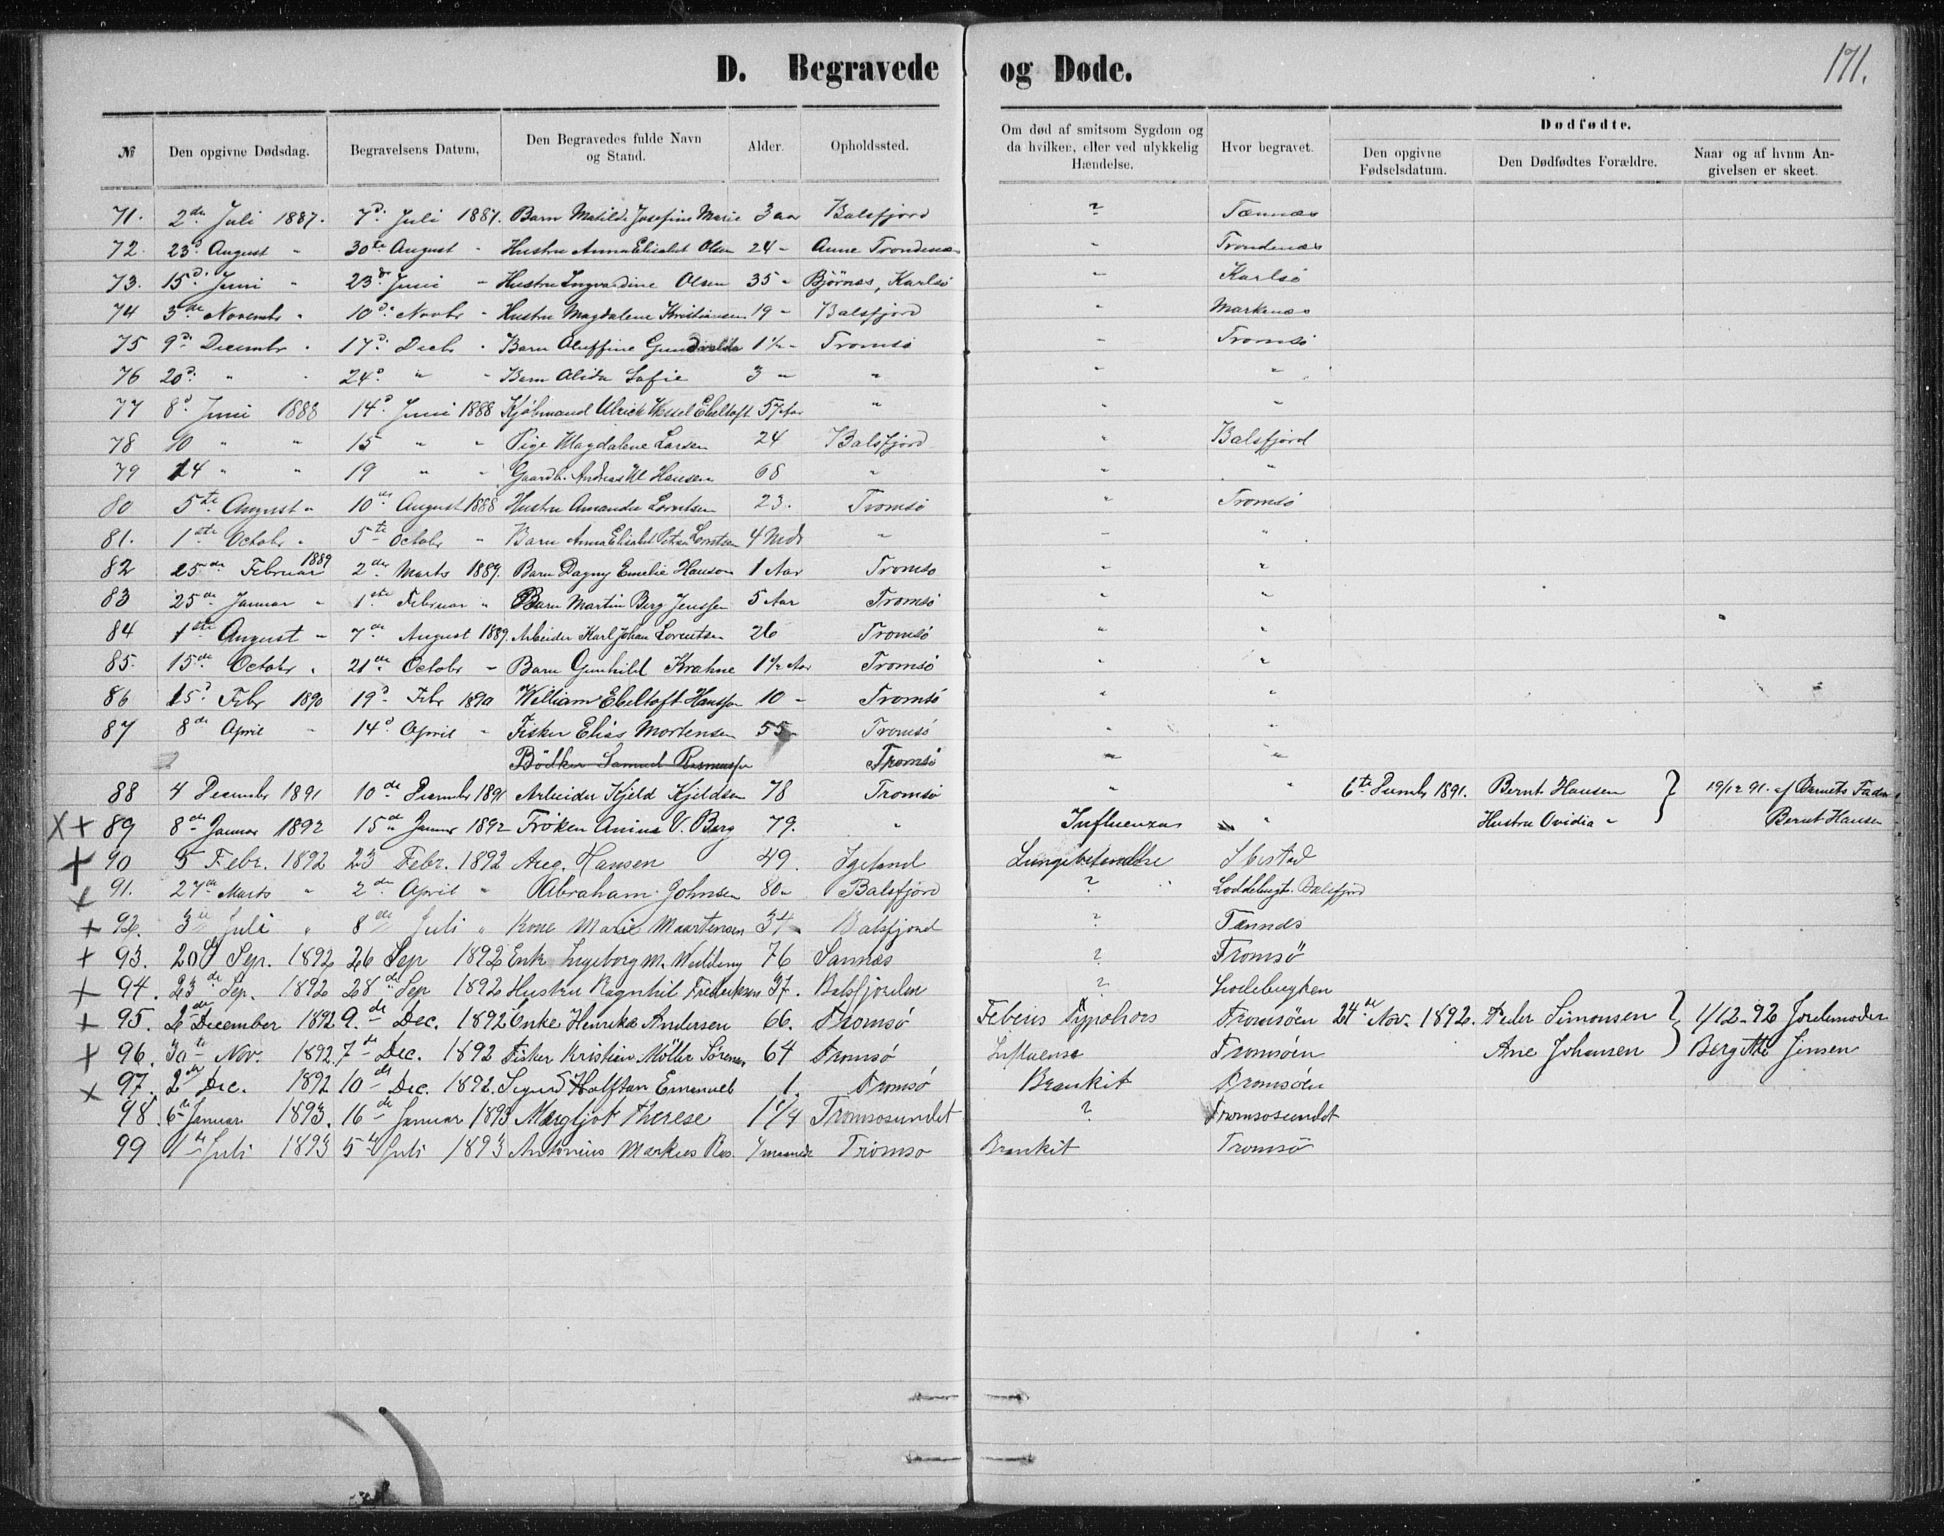 171.
D. Begravede og Døde.
№ Den opgivne Dødsdag. Begravelsens Datum, Den Begravedes fulde Navn og Stand. Alder. Opholdssted. Om død af smitsom Sygdom og da hvilken, eller ved ulykkelig Hændelse. Hvor begravet. Dødfødte. Den opgivne Fødselsdatum. Den Dødfødtes Forældre. Naar og af hvem Angivelsen er skeet.
71. 2de Juli 1887. 7d. Juli 1887. Barn Matilde Josefine Marie 3 aar Balsfjord ? Tennæs
72. 23d. August " 30te August " Hustru Anna Elisabet Olsen 24 " Trondenæs " Trondenæs
73. 15d. Juni " 23de Juni " Hustru Ingvardine Olsen 35 " Bjørnæs, Karlsö " Karlsö
74 3de Novembr " 10d. Novbr " Hustru Magdalene Kristiansen 19 " Balsfjord " Markenæs
75 9d. Decembr " 17d. Decbr " Barn Oluffine 1½ " Tromsö " Tromsö
76 20d. " " 24d. " " Barn Alida Sofie 3 " " " "
77 8d. Juni 1888 14d. Juni 1888 Kjöbmand Ulrick Wessel Ebeltoft 57 Aar " " "
78 10 " " 15 " " Pige Magdalene Larsen 24 Balsfjord " Balsfjord
79 14 " " 19 " " Gaardb. Andreas M Hansen 68 " " "
80 5te August " 10de August 1888 Hustru Amanda Lorntsen 23. Tromsö " Tromsö
81. 1ste Octobr " 5te Octobr " Barn Anna Elisabet Lorntsen 4 Mdr " " "
82 25de Februar 1889 2de Marts 1889. Barn Dagny Emelie Hanson 1 Aar Tromsö " "
83 25de Januar " 1ste Februar " Barn Martin Berg Jenssen 5 Aar Tromsö " "
84 1ste August " 7de August 1889. Arbeider Karl Johan Lorentsen 26 Tromsö " "
85. 15de Octobr " 21de Octobr " Barn Gunhild Krahne 1½ Aar Tromsö " "
86 15d Febr 1890 19d Febr 1890 William Ebeltoft Hanssen 10 " Tromsö " "
87 8de April " 14d April " Fisker Elias Mortensen 55 " Tromsö " "
Bödker Samuel Rasmussen Tromsö " "
88 4 December 1891 10de December 1891 Arbeider Kjeld Kjeldsen 78 Tromsö " " 6te 1891. Bernt Hansen } 19/12 91. af Barnets Fader
X+ 89 8de Januar 1892 15de Januar 1892 Fröken Anina V. Berg 79. " Influenza " Hustru Ovidia " Bernt Hansen
+ 90 5 Febr. 1892 23 Febr. 1892 Aug. Hansen 49. Igeland Lungebetendelse Ibestad
+ 91. 27de Marts " 2de April " Abraham Johnsen 80 " Balsfjord ? Loddebugt. Balsfjord
+ 92. 3de Juli " 8de Juli " Kone Marie Maartensen 34 Balsfjord ? Tennes
+ 93. 20d Sep. 1892 26 Sep 1892 Enke Ingeborg M. 76 Sannæs ? Tromsö
+ 94. 23de Sep. 1892 28de Sep 1892 Hustru Ragnhil Frederiksen 37. Balsfjorden ?
+ 95. 2de December 1892 9de Dec. 1892 Enke Henrika Andersen 66. Tromsö Tromsöen 24de Nov. 1892. Peder Simonsen } 1/12-92 Jordemoder
+ 96. 30te Nov. 1892 7de Dec. 1892 Fisker Kristian Möller Sörensen 64 Tromsö Influensa Tromsöen Ane Johansen Bergitte Jensen
x 97. 2de Dec. 1892 10de Dec. 1892. Sigurd Halftan Emanuel 1. Tromsö Bronkit Tromsöen
98. 6te Januar 1893. 16de Januar 1893 Margljot Therese 1¼ Tromsosundet ? Tromsosundet
99 1ste Juli 1893 5te Juli 1893 Antonius Markus Ros. 4 maaneder Tromsö Bronkit Tromsö